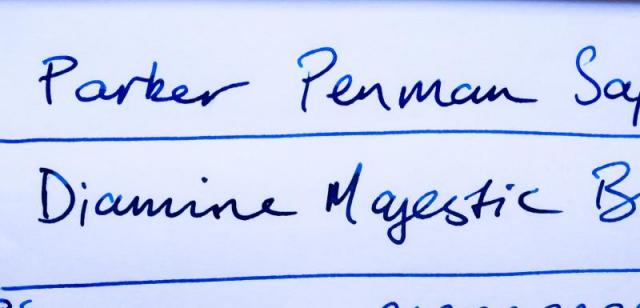 Parker Penman Sap
Diamine Majestic B